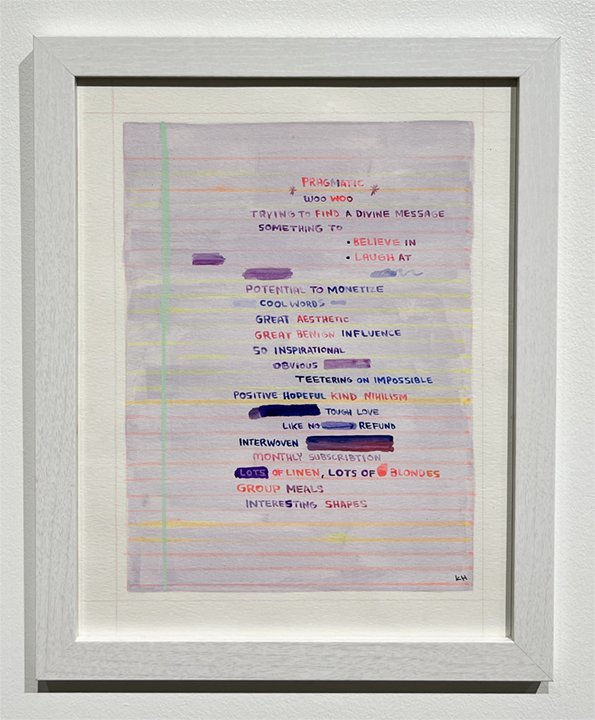 * PRAGMATIC *
WOO WOO
TRYING TO FIND A DIVINE MESSAGE
SOMETHING TO
• BELIEVE IN
• LAUGH AT
POTENTIAL TO MONETIZE
COOL WORDS
GREAT AESTHETIC
GREAT BENIGN INFLUENCE
SO INSPIRATIONAL
OBVIOUS
TEETERING ON IMPOSSIBLE
POSITIVE HOPEFUL KIND NIHILISM
TOUGH LOVE
LIKE NO REFUND
INTERWOVEN
MONTHLY SUBSCRIBTION
LOTS OF LINEN, LOTS OF BLONDES
GROUP MEALS
INTERESTING SHAPES
KH